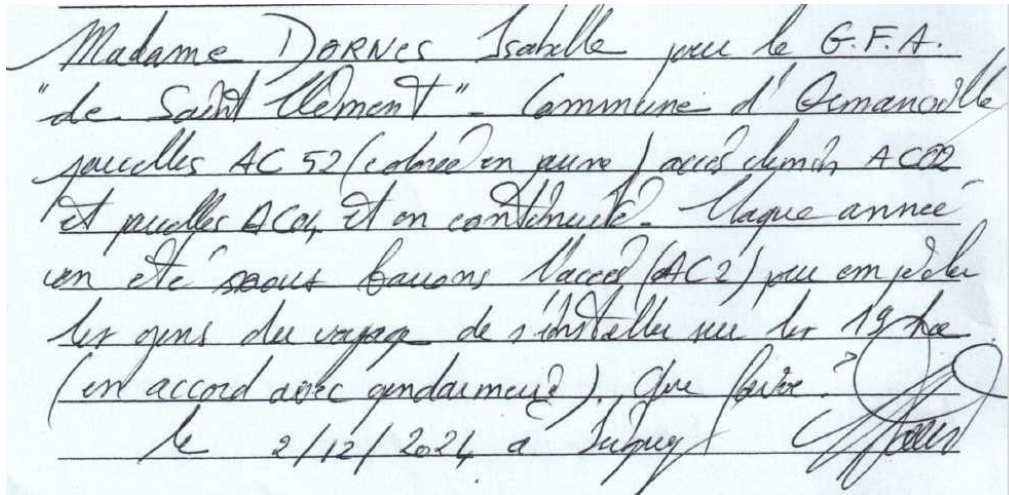 Madame DORNES Isabelle pour le G.F.A.
"de Saint Clément" - Commune d'
parcelles AC 52 (colorée en jaune) accès chemin AC02
et parcelles AC04 et en continuité. Chaque année
en été nous barrons l'accès (AC2) pour empêcher
les gens du voyage de s'installer sur les 19 ha
(en accord avec gendarmerie). Que faire ?
le 2/12/2024 à